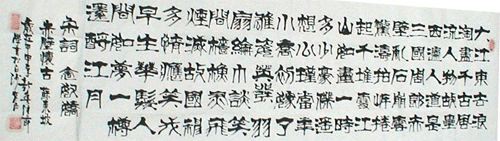 大江東去浪
淘盡千古風
流人物故壘
西邊人道是
三國周郎赤
壁亂石崩雲
驚濤裂岸捲
起千堆雪江
山如畫一時
多少豪傑遙
想公瑾當年
小喬初嫁了
雄姿英發羽
扇綸巾談笑
間檣櫓灰飛
煙滅故國神遊
多情應笑我
早生華髮人
間如夢一樽
還酹江月
宋詞念奴嬌
赤壁懷古